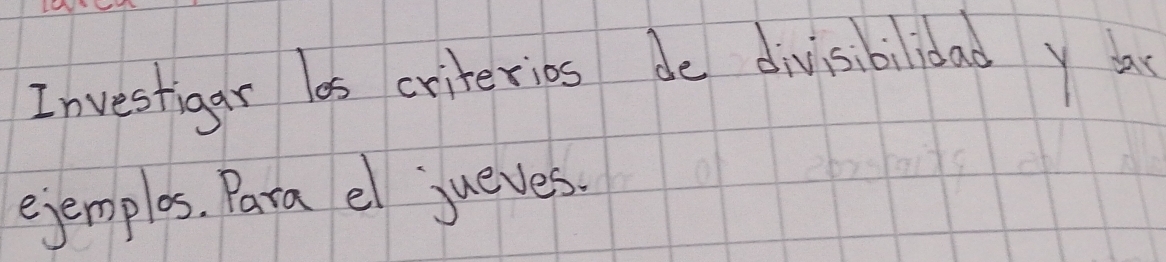 Investigar los criterios de divisibilidad y dar
ejemplos. Para el jueves.